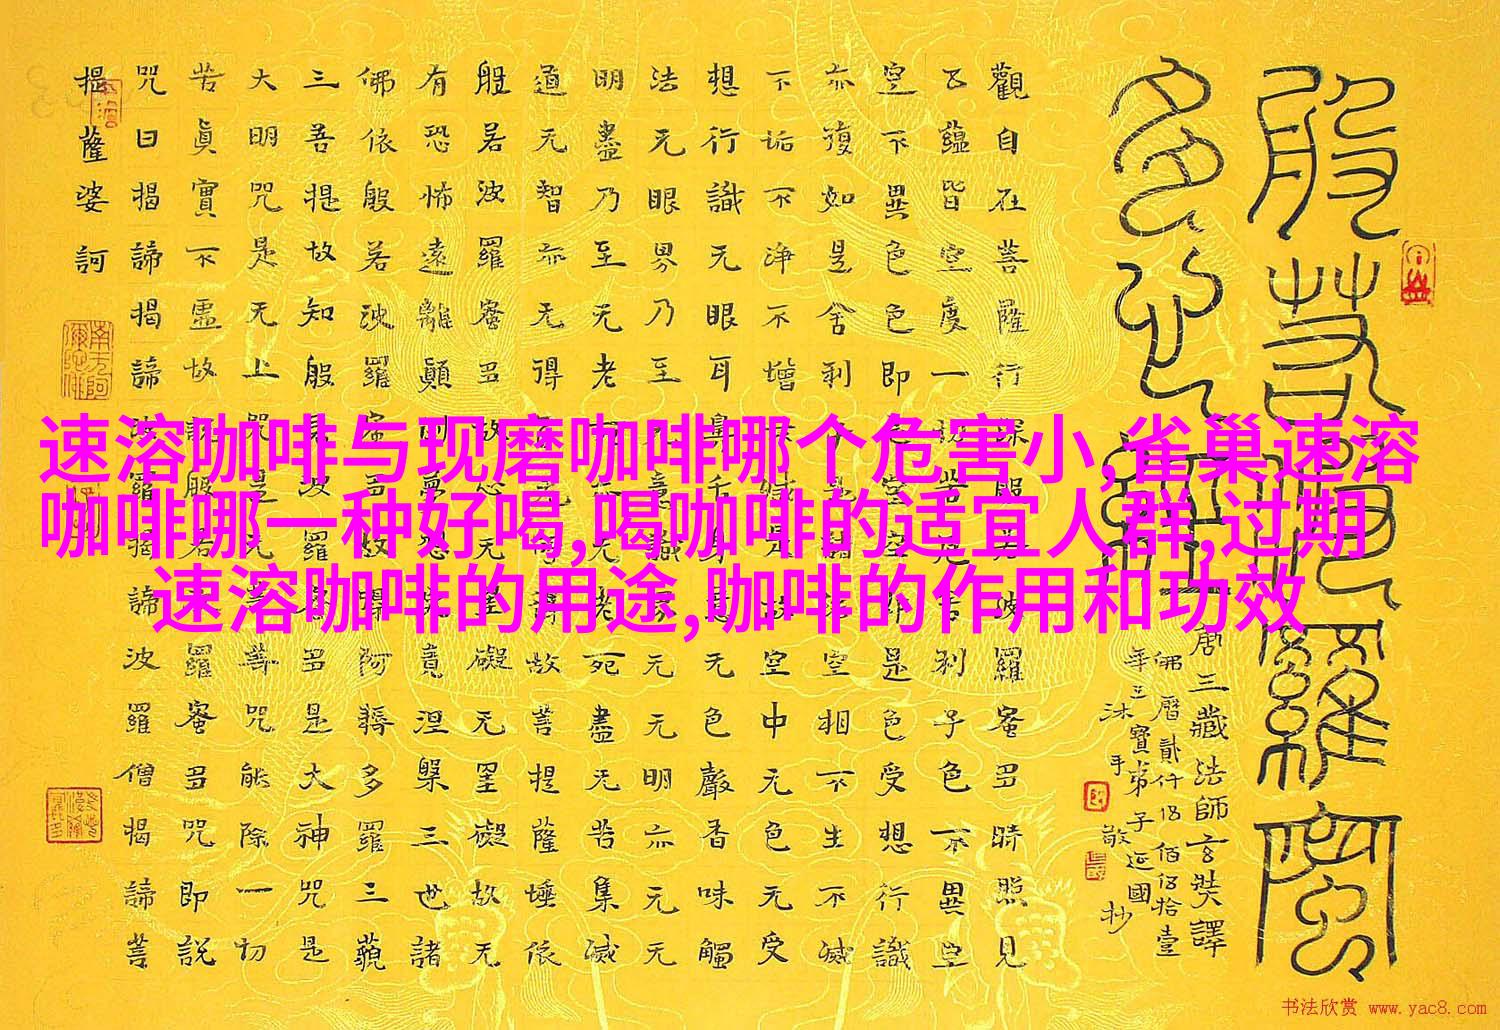 速溶咖啡与现磨咖啡哪个危害小,雀巢速溶
咖啡哪一种好喝,喝咖啡的适宜人群,过期
速溶咖啡的用途,咖啡的作用和功效
般若波羅蜜
多心經
唐三藏法師玄奘譯
佛曆貳仟伍佰伍拾壹
年三寶弟子延國
沐手敬抄
觀自在菩薩行深般若波羅蜜多時照見
五蘊皆空度一切苦厄舍利子色不異空
空不異色色即是空空即是色受想行識
亦復如是舍利子是諸法空相不生不滅
不垢不淨不增不減是故空中无色无受
想行識无眼耳鼻舌身意无色聲香味觸
法无眼界乃至无意識界无无明亦无无
明盡乃至无老死亦无老死盡无苦集滅
道无智亦无得以无所得故菩提薩埵依
般若波羅蜜多故心无罣礙无罣礙故无
有恐怖遠離顛倒夢想究竟涅槃三世諸
佛依般若波羅蜜多故得阿耨多羅三藐
三菩提故知般若波羅蜜多是大神咒是
大明咒是无上咒是无等等咒能除一切
苦真實不虛故說般若波羅蜜多咒即說
咒曰揭諦揭諦波羅揭諦波羅僧揭諦菩
提薩婆訶
书法欣赏 www.yac8.com